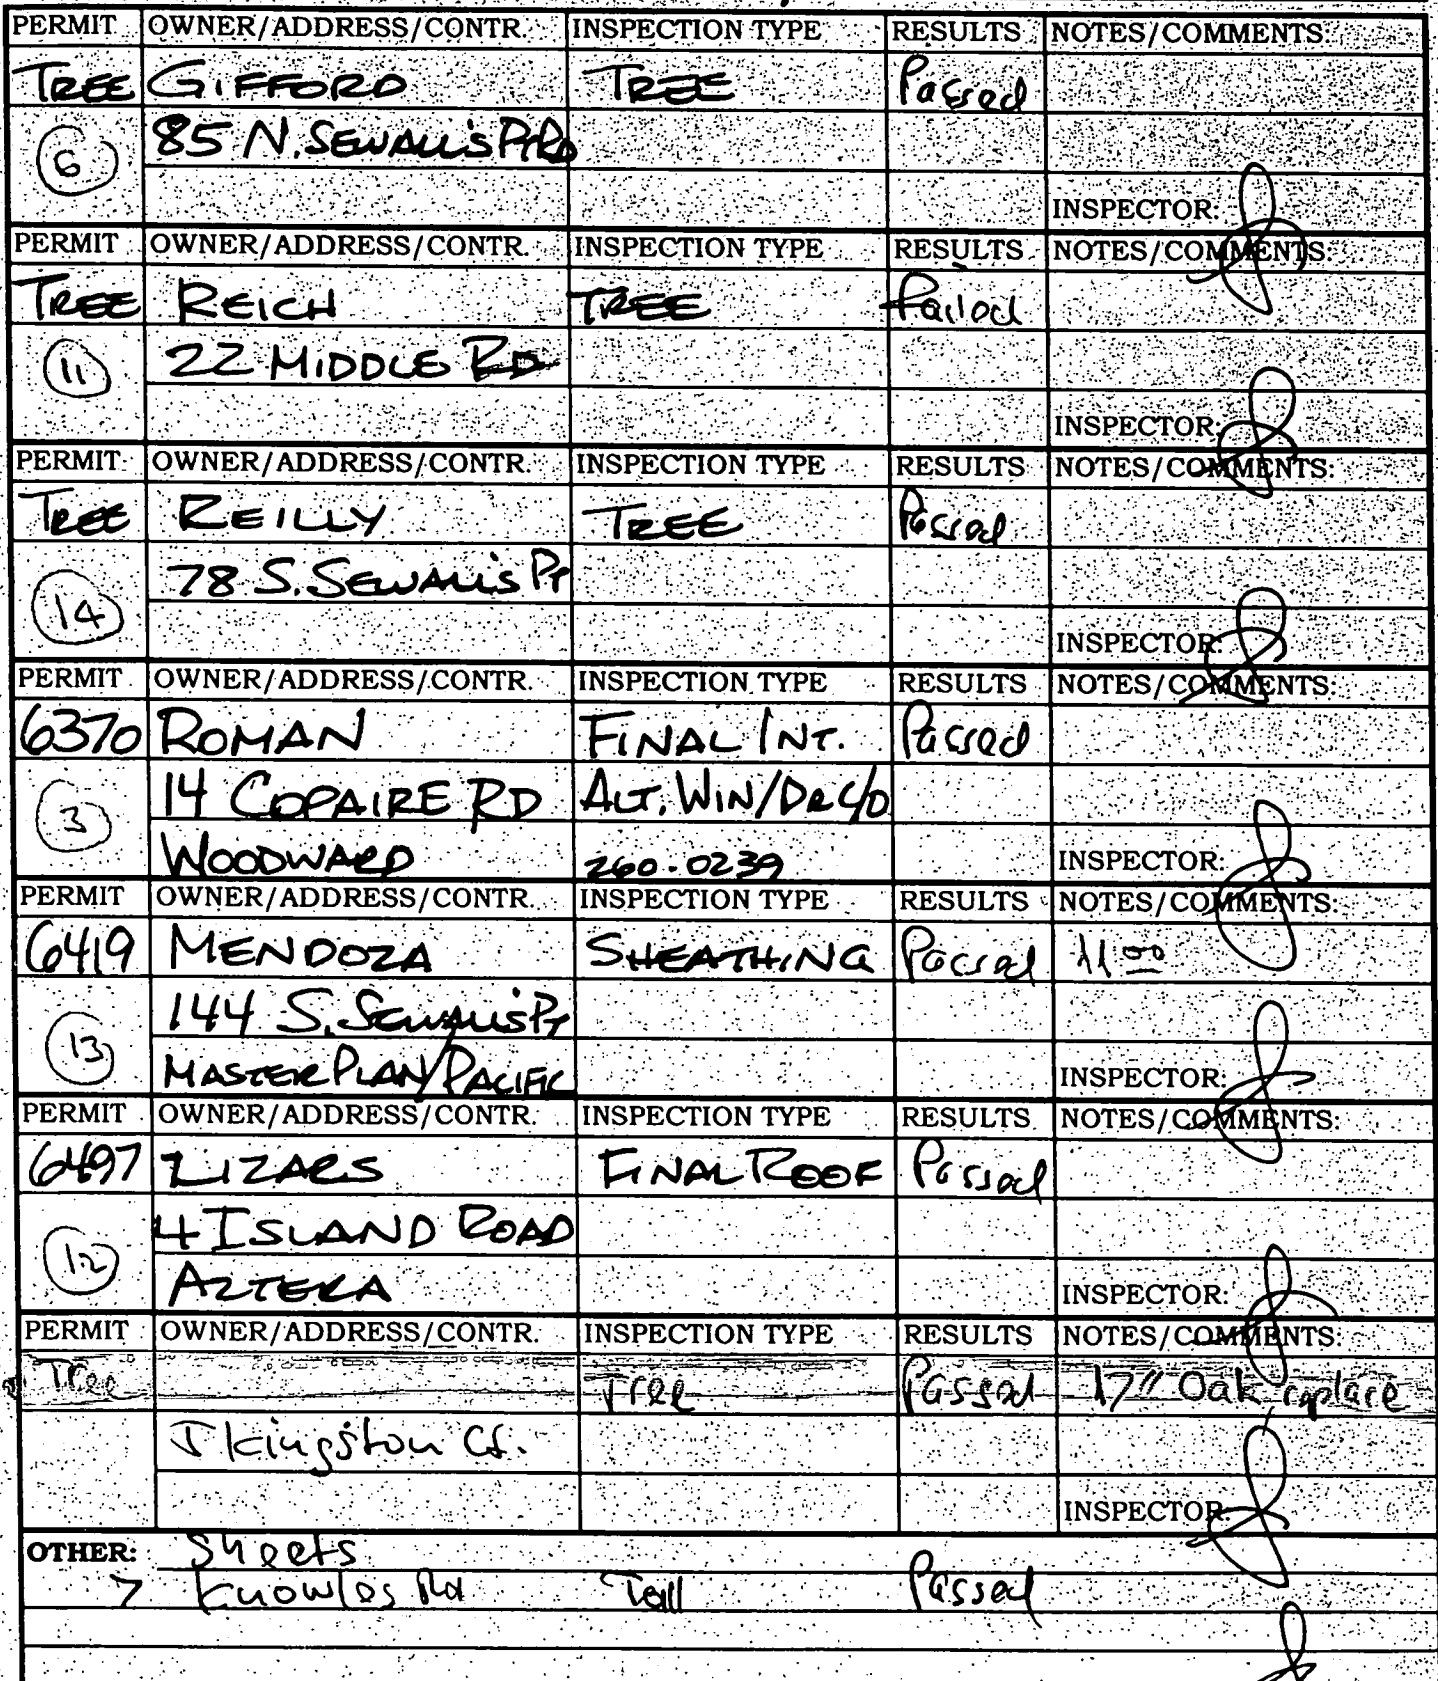 PERMIT OWNER/ADDRESS/CONTR. INSPECTION TYPE RESULTS NOTES/COMMENTS:
TREE GIFFORD TREE Passed
6 85 N. SEWALL'S PT RD
INSPECTOR:
PERMIT OWNER/ADDRESS/CONTR. INSPECTION TYPE RESULTS NOTES/COMMENTS:
TREE REICH TREE Failed
11 22 MIDDLE RD
INSPECTOR:
PERMIT OWNER/ADDRESS/CONTR. INSPECTION TYPE RESULTS NOTES/COMMENTS:
TREE REILLY TREE Passed
14 78 S. SEWALL'S PT
INSPECTOR:
PERMIT OWNER/ADDRESS/CONTR. INSPECTION TYPE RESULTS NOTES/COMMENTS:
6370 ROMAN FINAL INT. Passed
3 14 COPAIRE RD ALT. WIN/DR C/O
WOODWARD 260-0239 INSPECTOR:
PERMIT OWNER/ADDRESS/CONTR. INSPECTION TYPE RESULTS NOTES/COMMENTS:
6419 MENDOZA SHEATHING Passed 11:00
13 144 S. SEWALL'S PT
MASTERPLAN/PACIFIC INSPECTOR:
PERMIT OWNER/ADDRESS/CONTR. INSPECTION TYPE RESULTS NOTES/COMMENTS:
6497 LIZARS FINAL ROOF Passed
12 4 ISLAND ROAD
AZTEKA INSPECTOR:
PERMIT OWNER/ADDRESS/CONTR. INSPECTION TYPE RESULTS NOTES/COMMENTS:
Tree Tree Passed 17" Oak replace
Kingston Ct.
INSPECTOR:
OTHER: Sheets
7 Knowles Rd Passed